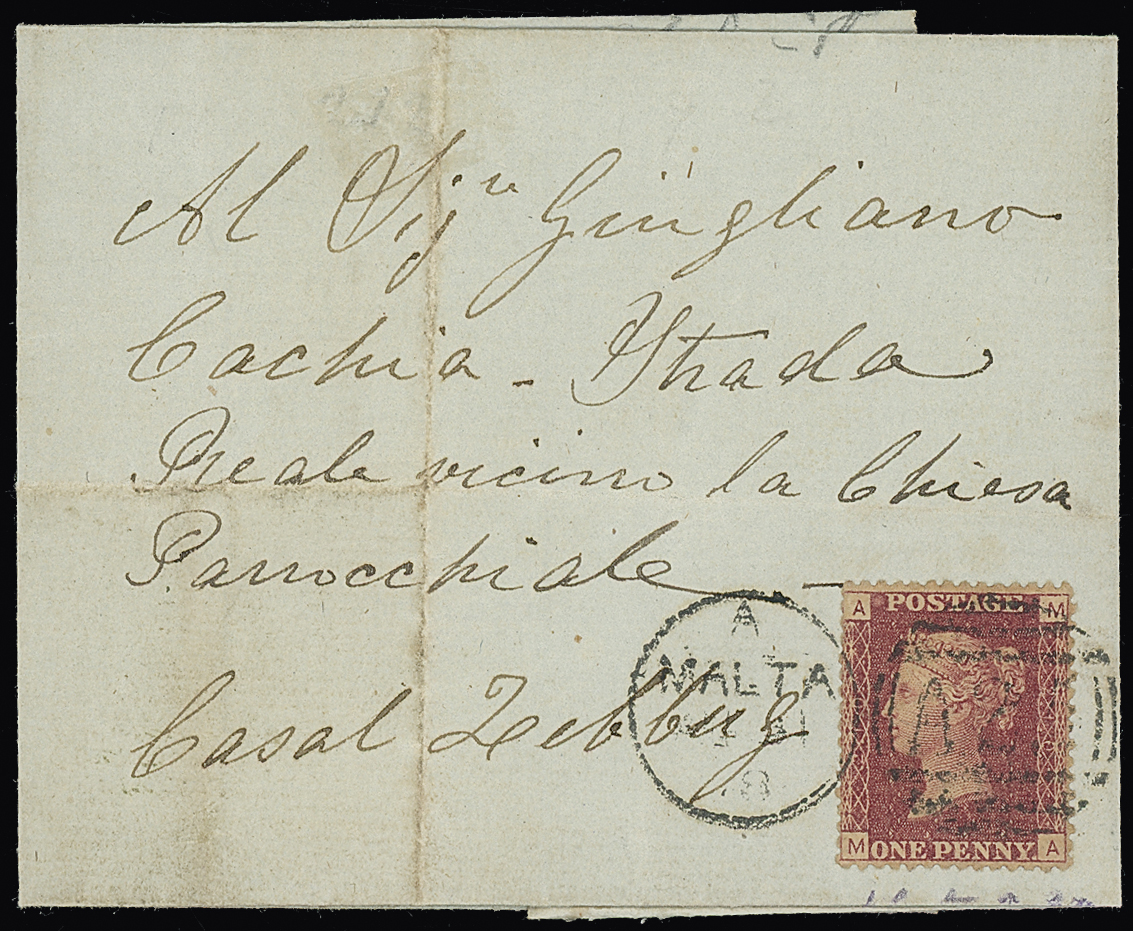 Al Sigre Giügliano
Cachia - Strada
Reale vicino la Chiesa
Parrocchiale
Casal Zebbug
A
MALTA
8
A POSTAGE M
M ONE PENNY A